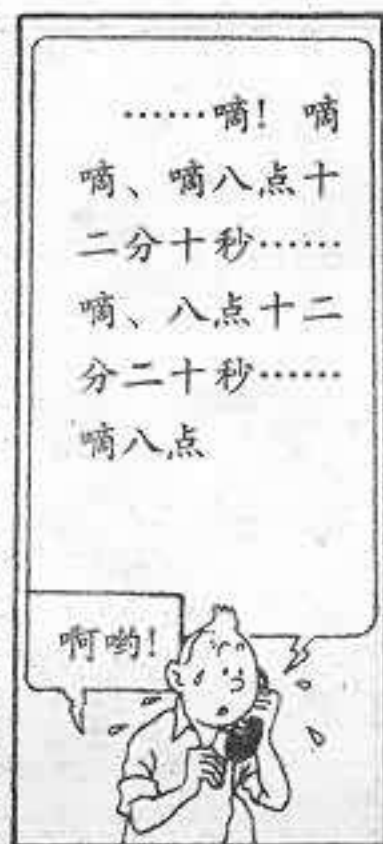 ……嘀！嘀
嘀、嘀八点十
二分十秒……
嘀、八点十二
分二十秒……
嘀八点
啊哟！